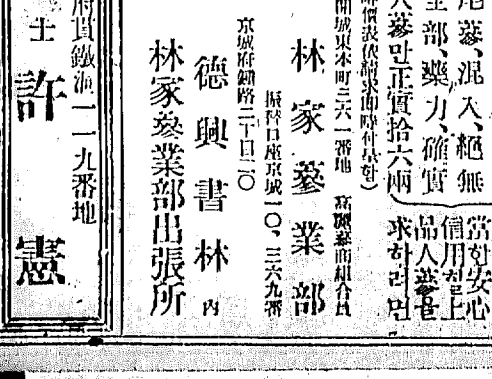 尾蔘、混入、絕無
全部、藥力、確實
人蔘만正實拾六兩
當한安心
信用할上
品人蔘을
求하려면
價表依請求卽時付呈함)
開城東本町二六一番地 高麗蔘商組合員
林家蔘業部
振替口座京城一〇、三六九番
京城府鍾路二丁目二〇
德興書林內
林家蔘業部出張所
府貫鐵洞一一九番地
士 許憲